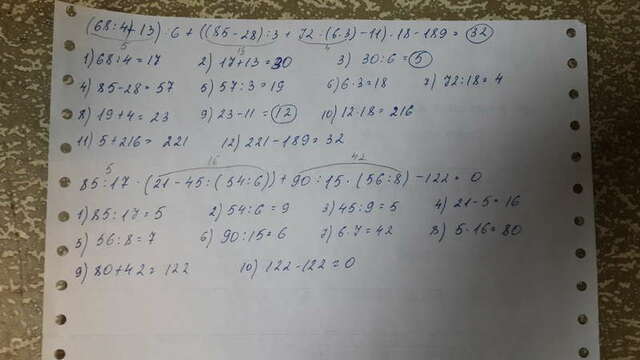 (68:4+13):6+((85-28):3+72:(6·3)-11)·18-189=32
5 13 4
1) 68:4=17 2) 17+13=30 3) 30:6=5
4) 85-28=57 5) 57:3=19 6) 6·3=18 7) 72:18=4
8) 19+4=23 9) 23-11=12 10) 12·18=216
11) 5+216= 221 12) 221-189=32
5 16 42
85:17·(21-45:(54:6))+90:15·(56:8)-122=0
1) 85:17=5 2) 54:6=9 3) 45:9=5 4) 21-5=16
5) 56:8=7 6) 90:15=6 7) 6·7=42 8) 5·16=80
9) 80+42=122 10) 122-122=0